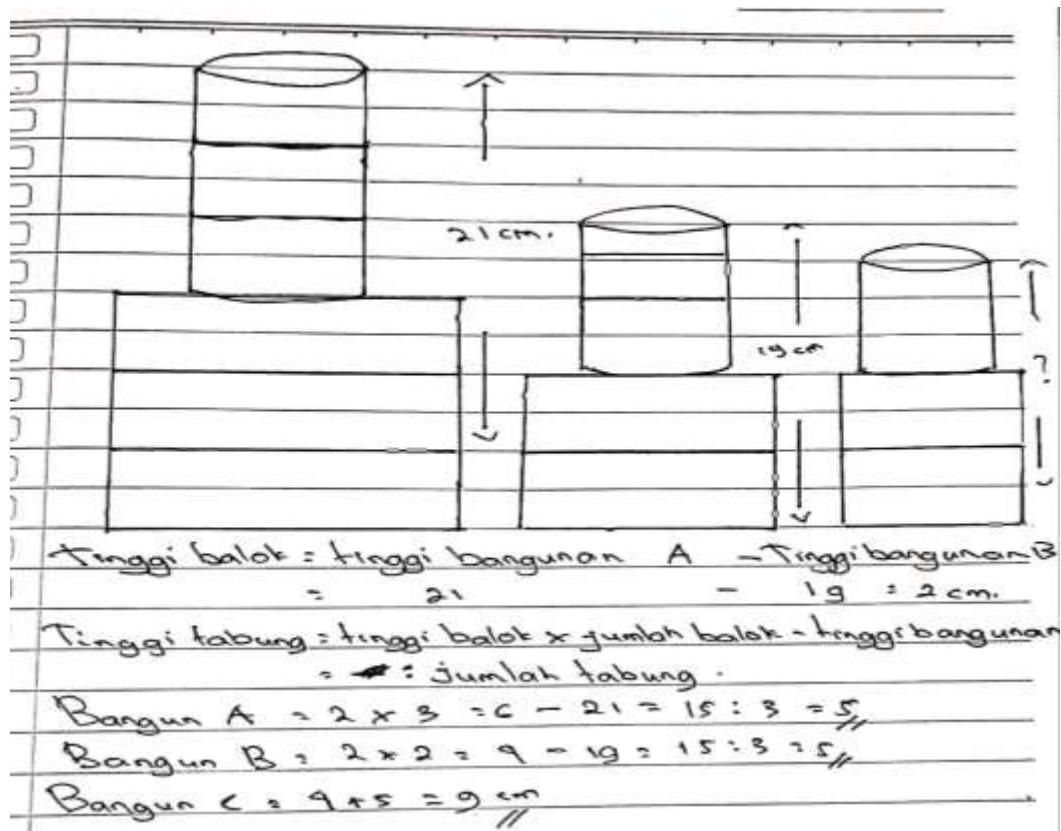 21 cm.
19 cm
?
Tinggi balok = tinggi bangunan A - Tinggi bangunan B
= 21 - 19 = 2 cm.
Tinggi tabung = tinggi balok x jumlah balok - tinggi bangunan
= : jumlah tabung.
Bangun A = 2 x 3 = 6 - 21 = 15 : 3 = 5
Bangun B = 2 x 2 = 4 - 19 = 15 : 3 = 5
Bangun C = 4 + 5 = 9 cm